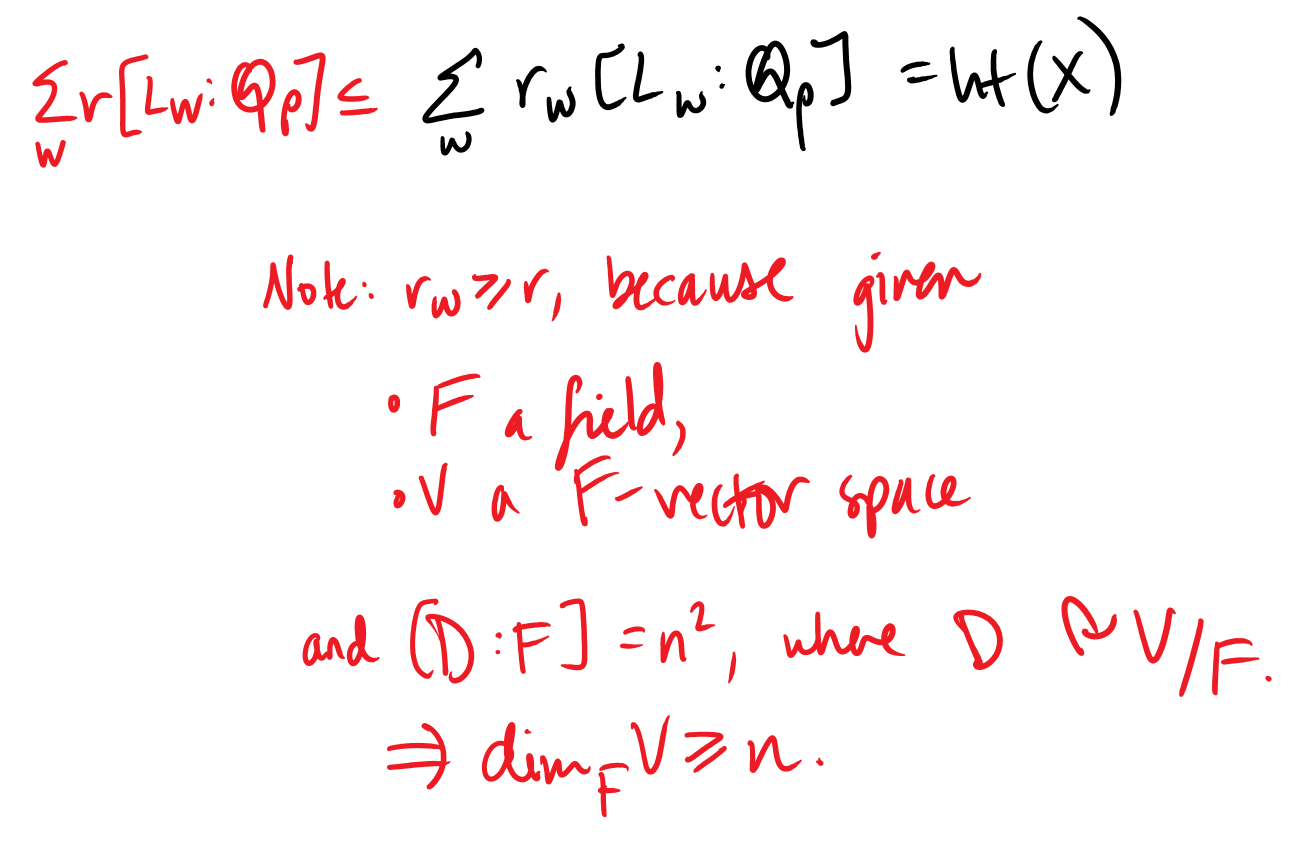 ∑_w r[L_w : ℚ_p] ≤ ∑_w r_w [L_w : ℚ_p] = ht(X)
Note: r_w ⩾ r, because given
• F a field,
• V a F-vector space
and [D : F] = n², where D ↷ V/F.
⇒ dim_F V ⩾ n.